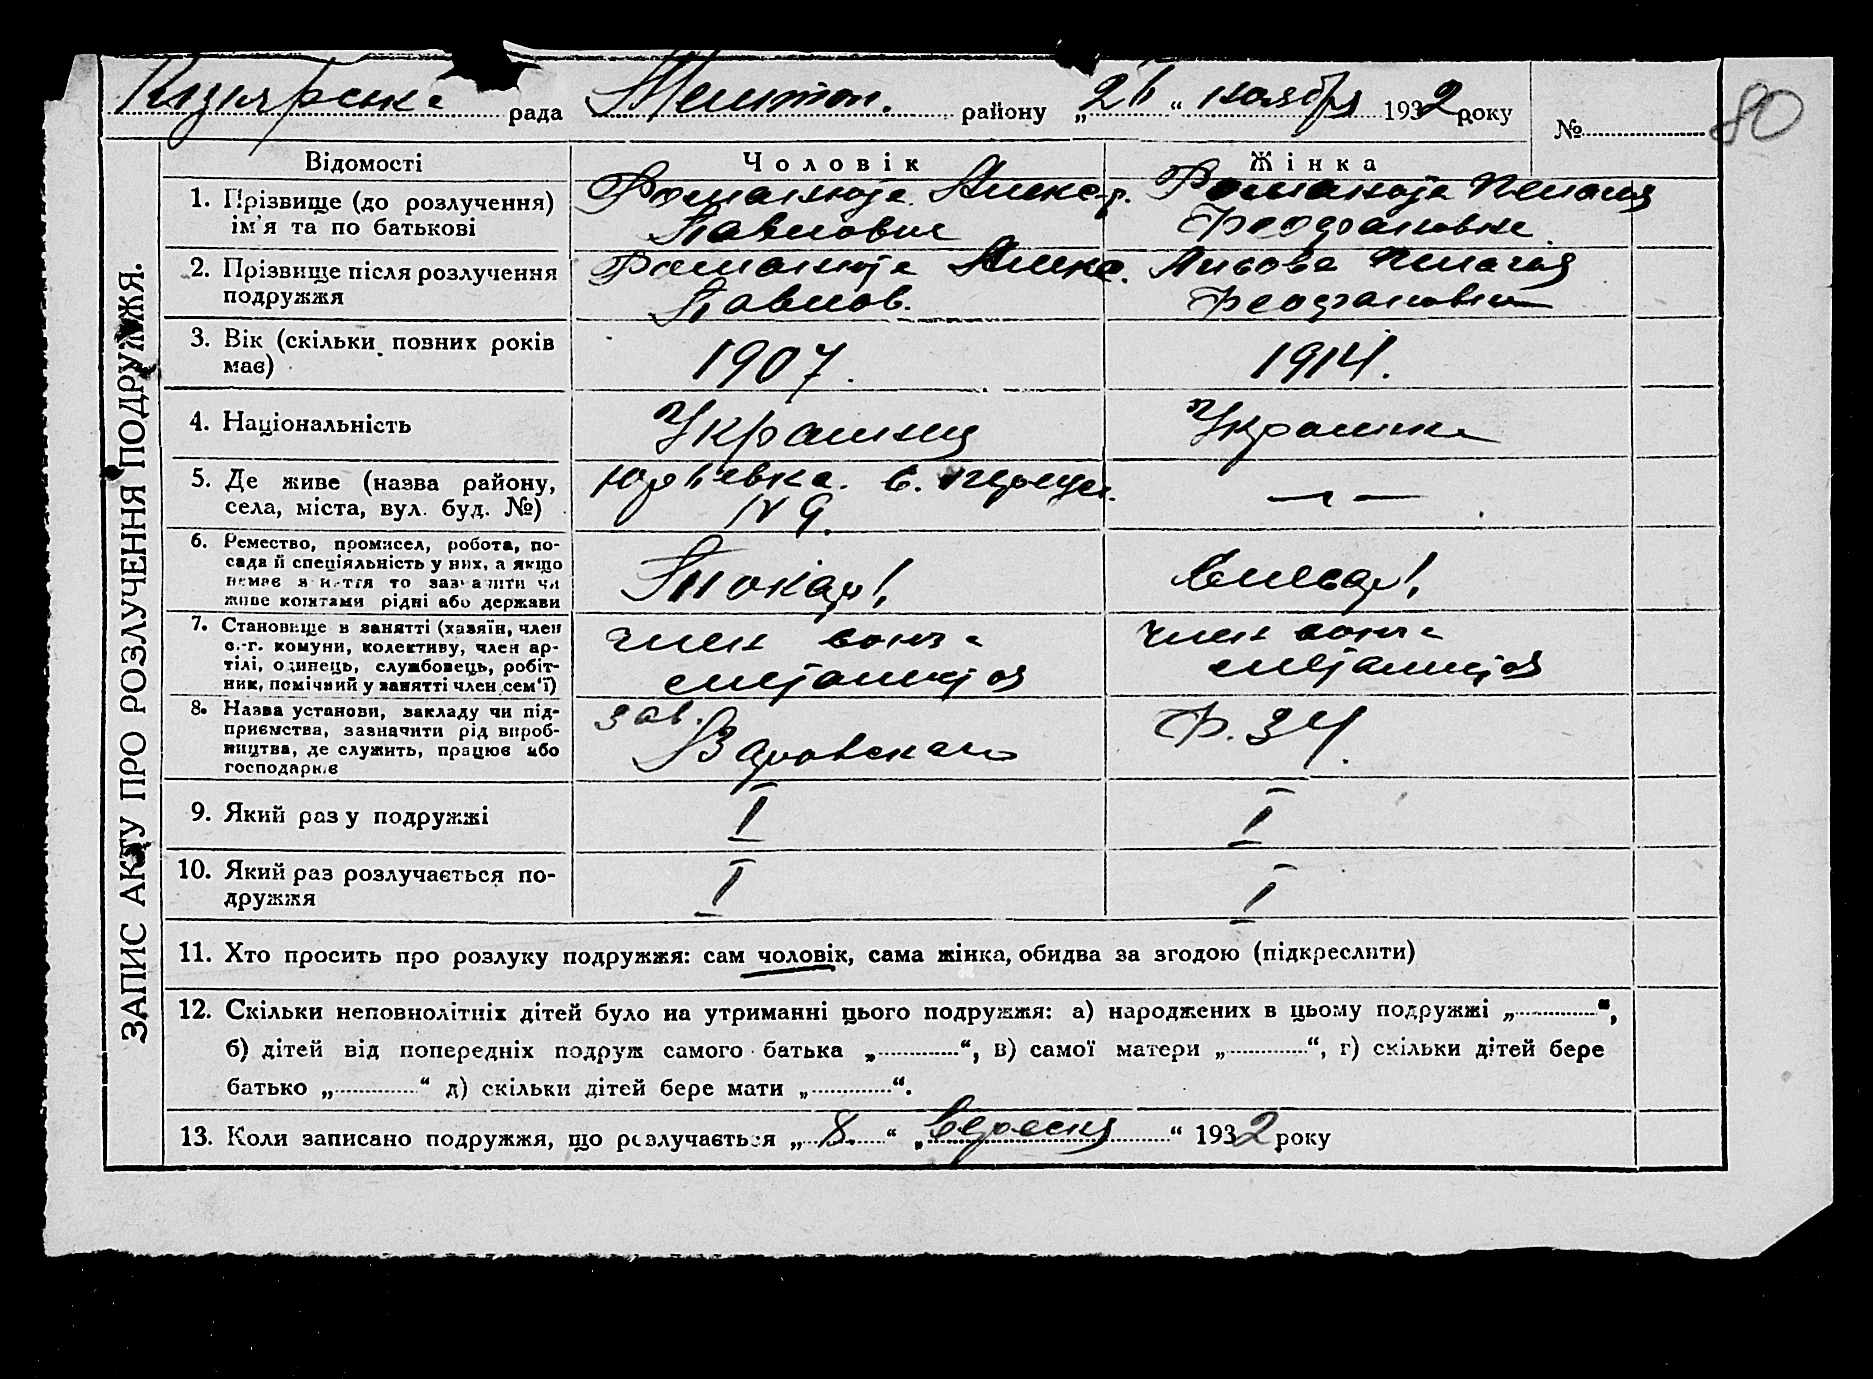 Кизярська рада Мелитоп. району „26“ ноября 1932 року №
80
ЗАПИС АКТУ ПРО РОЗЛУЧЕННЯ ПОДРУЖЖЯ.
Відомості Чоловік Жінка
1. Прізвище (до розлучення) ім'я та по батькові
Павлович
Пелагия
Феофановна
2. Прізвище після розлучення подружжя
Павлов.
Пелагия
Феофановна
3. Вік (скільки повних років має)
1907.
1914.
4. Національність
Украинец
Украинка
5. Де живе (назва району, села, міста, вул. буд. №)
Юрьевка.
№ 9.
— —
6. Ремество, промисел, робота, посада й спеціяльність у них, а якщо немає заняття то зазначити чи живе коштами рідні або держави
Токарь
7. Становище в занятті (хазяїн, член с.-г. комуни, колективу, член артілі, одинець, службовець, робітник, помічний у занятті член сем'ї)
член
член
8. Назва установи, закладу чи підприємства, зазначити рід виробництва, де служить, працює або господарює
зав.
Воровского
Ф. 34.
9. Який раз у подружжі
I
I
10. Який раз розлучається подружжя
I
I
11. Хто просить про розлуку подружжя: сам чоловік, сама жінка, обидва за згодою (підкреслити)
12. Скільки неповнолітніх дітей було на утриманні цього подружжя: а) народжених в цьому подружжі „ “,
б) дітей від попередніх подруж самого батька „ “, в) самої матери „ “, г) скільки дітей бере
батько „ “ д) скільки дітей бере мати „ “.
13. Коли записано подружжя, що розлучається „8.“ „Вересня“ 1932 року